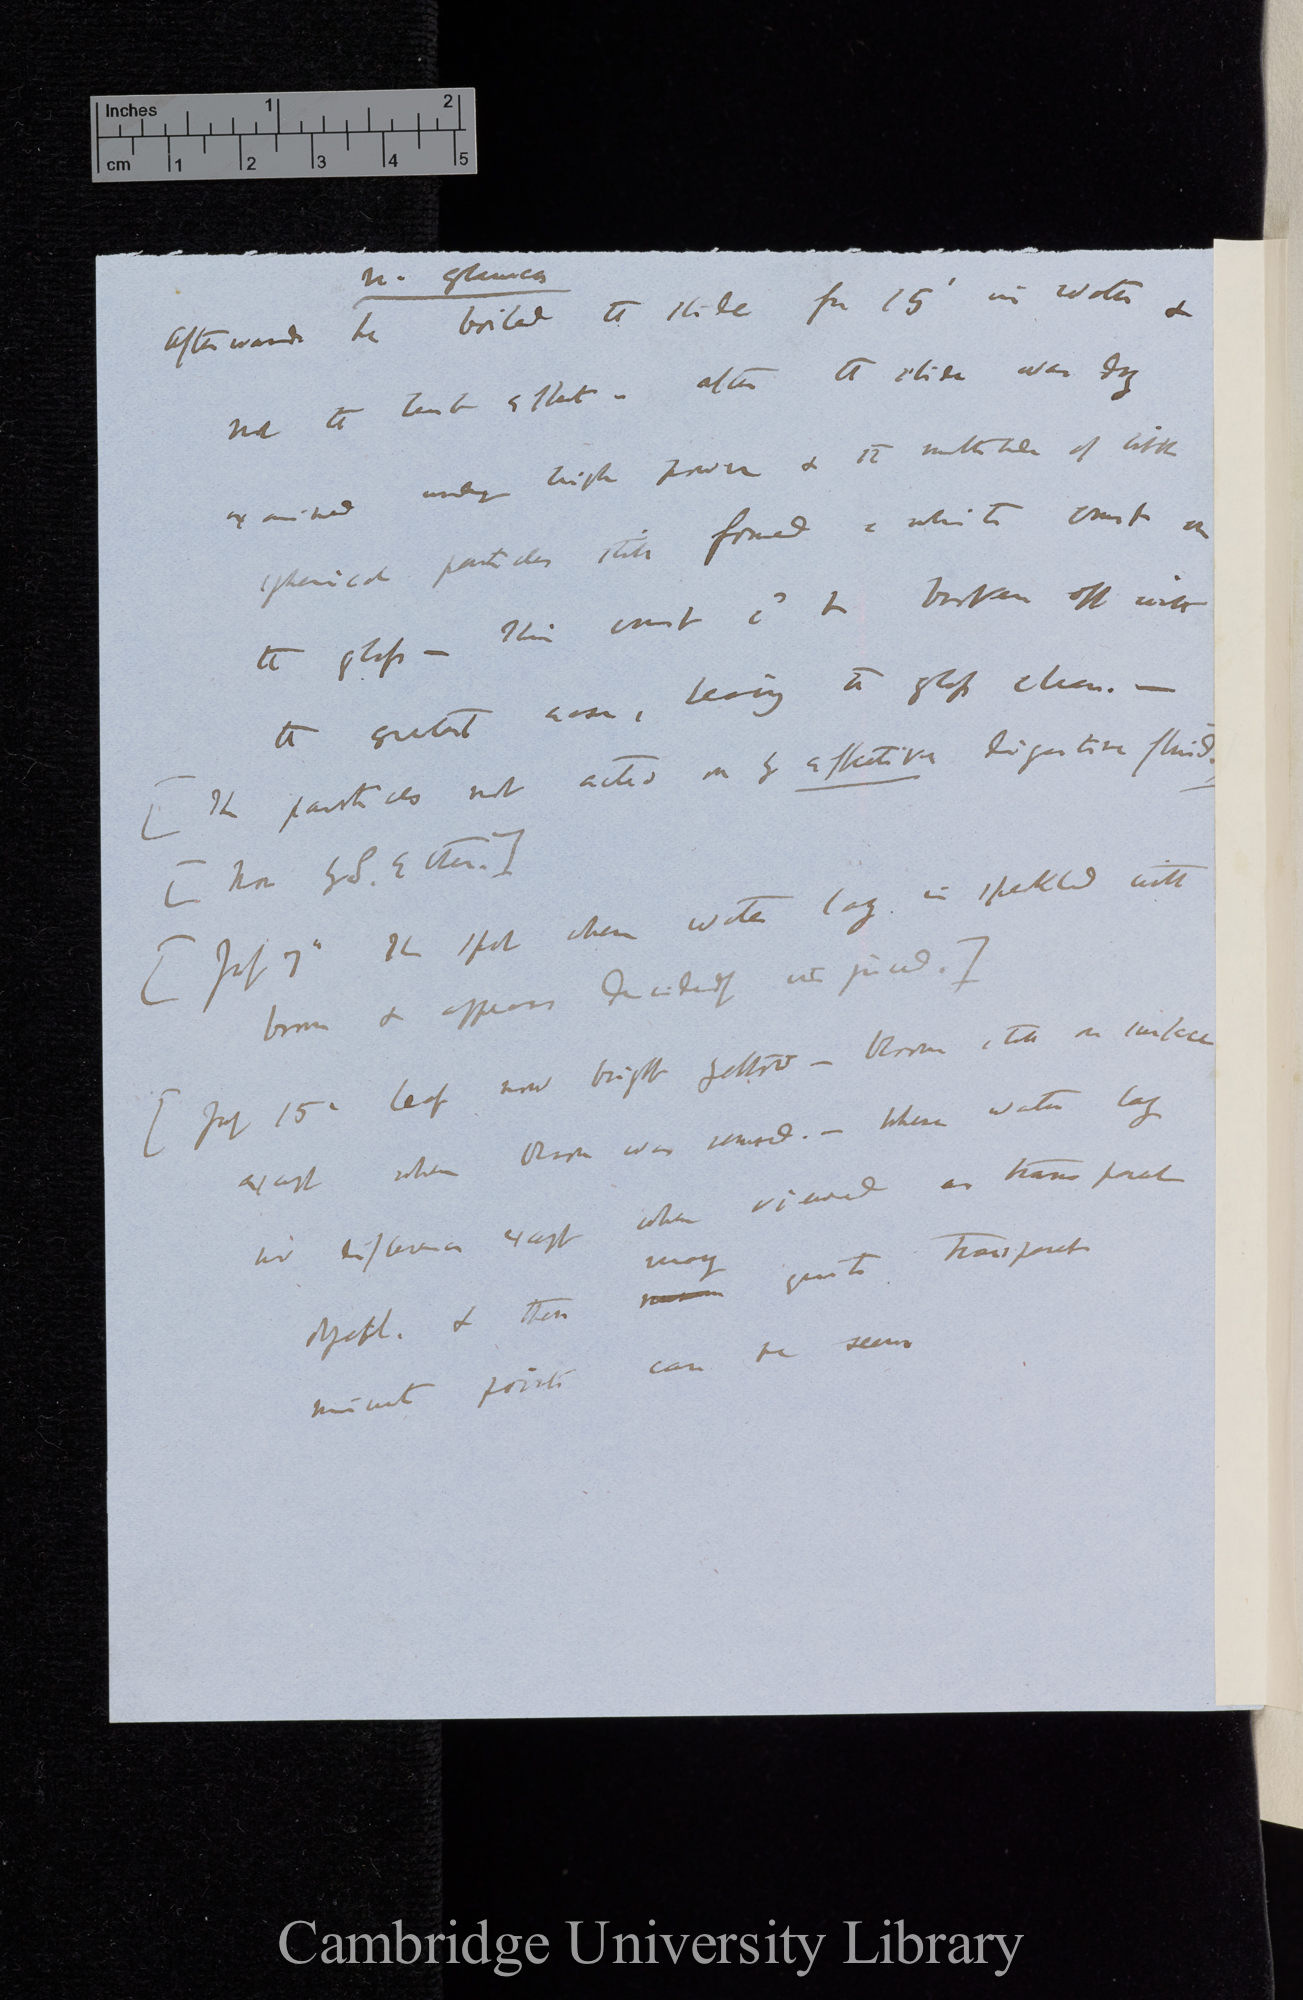 Inches 1 2
cm 1 2 3 4 5
N. glauca
Afterwards he boiled the slide for 15' in water &
not the least effect – after the slide was dry
examined under high power & the multitude of little
spherical particles still formed a white crust on
the glass — This crust cd be broken off with
the greatest ease, leaving the glass clean. —
[ The particles not acted on by effective digestive fluid.
[ Nor by S. Ether.]
[ July 7th The spot where water lay is speckled with
brown & appears decidedly injured.]
[ July 15th leaf now bright yellow — bloom still on surface
except when bloom was removed. — Where water lay
no difference except when viewed as transparent
object. & then many quite transparent
minute points can be seen
Cambridge University Library